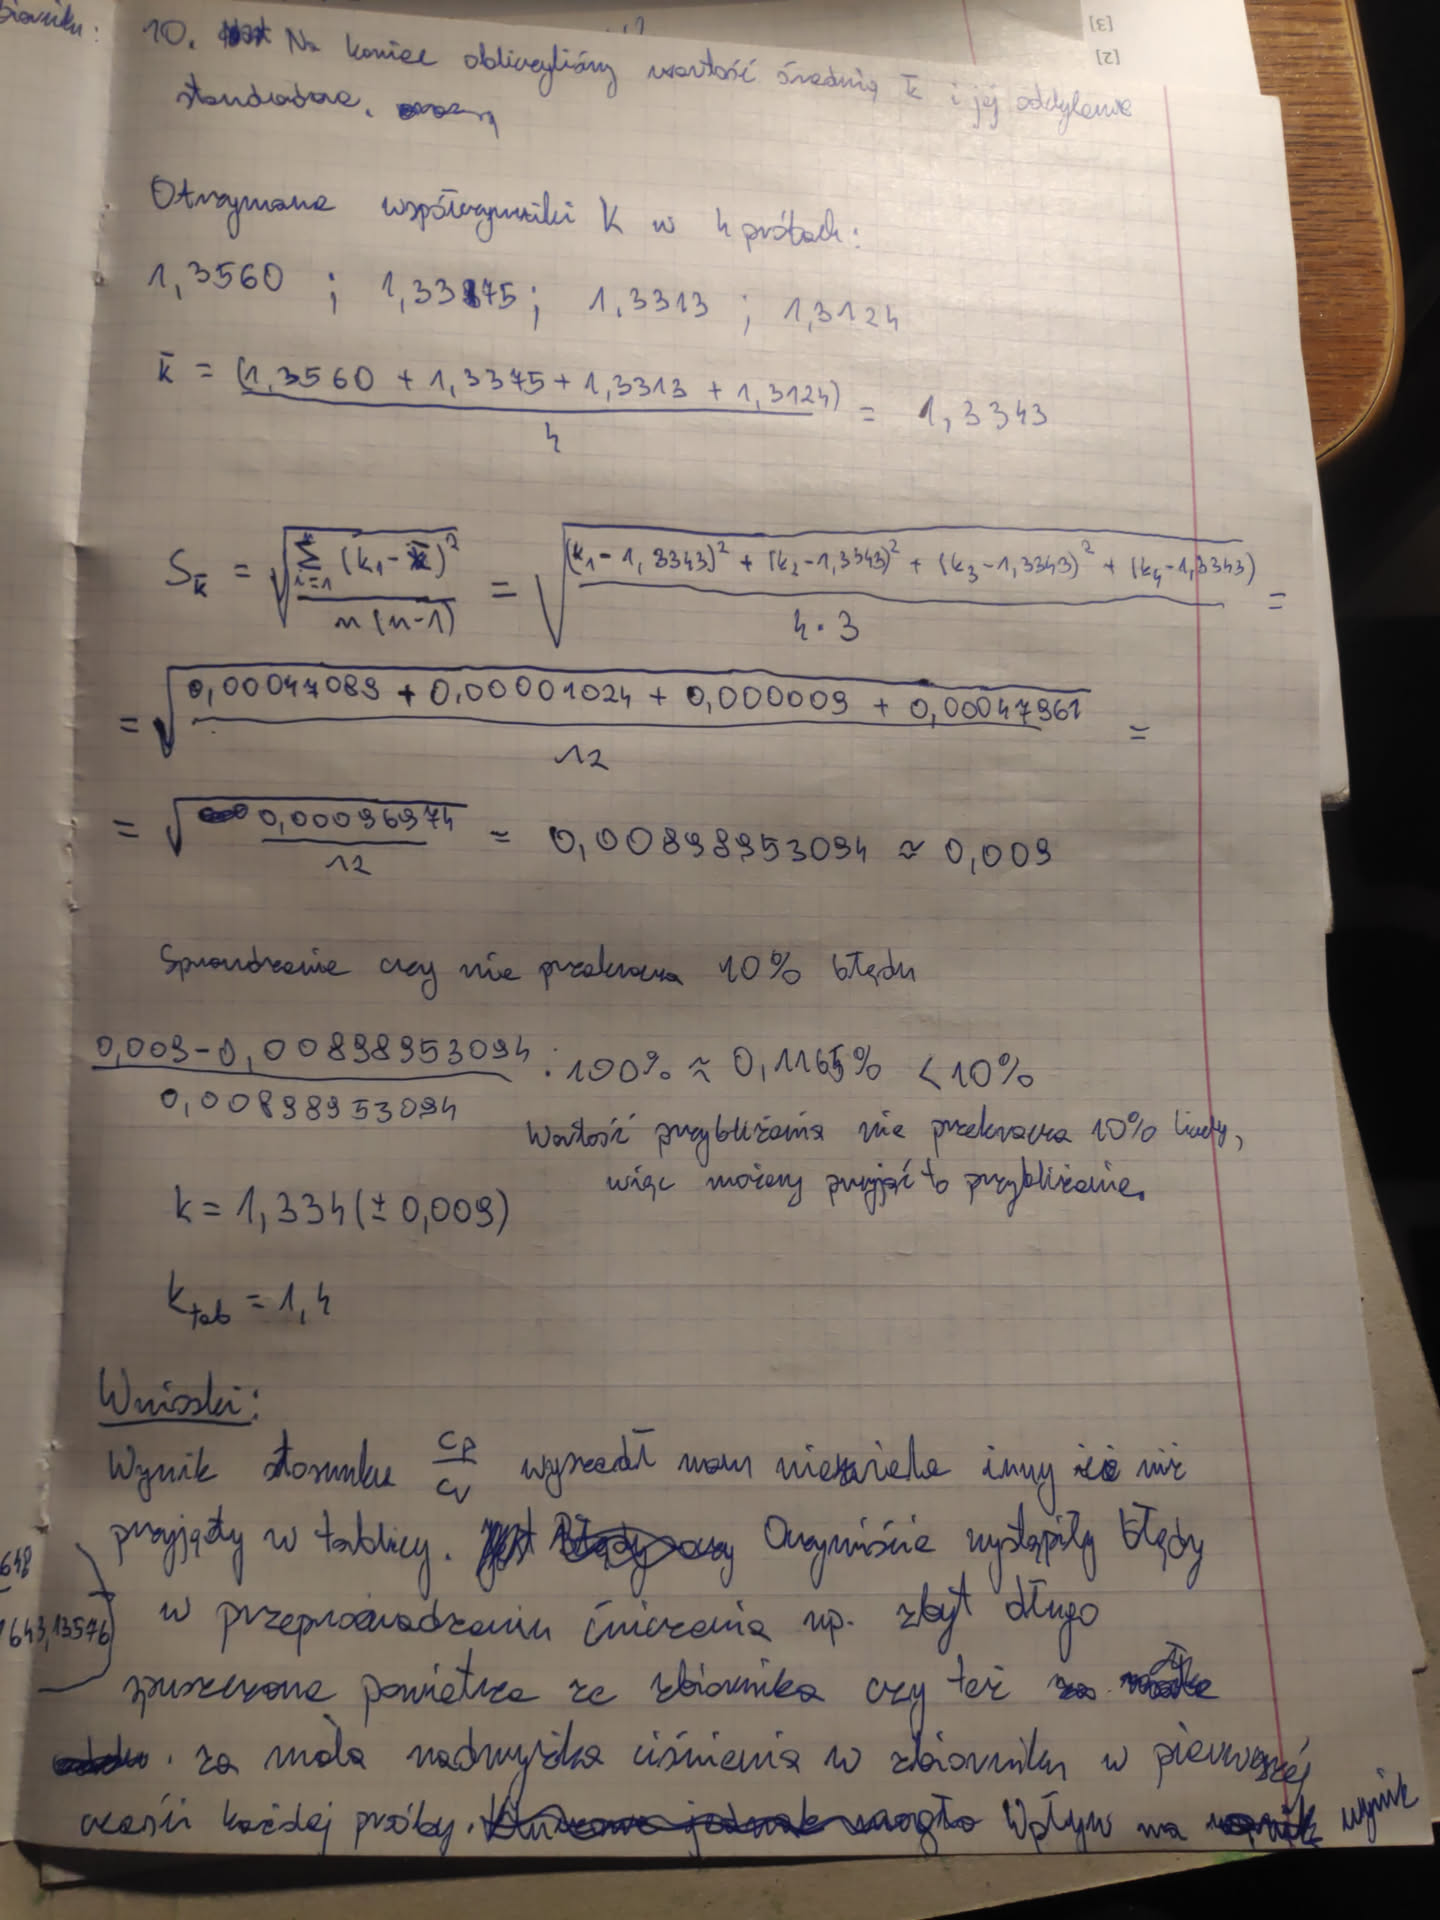 [3]
[2]
10. Na koniec obliczyliśmy wartość średnią k̄ i jej odchylenie
standardowe.
Otrzymane współczynniki K w 4 próbach:
1,3560 ; 1,3375 ; 1,3313 ; 1,3124
k̄ = (1,3560 + 1,3375 + 1,3313 + 1,3124) / 4 = 1,3343
S_k̄ = √(∑_{i=1} (k₁ - k̄)² / n(n-1)) = √((k₁ - 1,3343)² + (k₂ - 1,3343)² + (k₃ - 1,3343)² + (k₄ - 1,3343) / 4·3) =
= √(0,00047089 + 0,00001024 + 0,000009 + 0,00047961 / 12) =
= √(0,00096974 / 12) = 0,00898953094 ≈ 0,009
Sprawdzenie czy nie przekracza 10% błędu
0,009 - 0,00898953094 / 0,00898953094 : 100% ≈ 0,1165% < 10%
Wartość przybliżania nie przekracza 10% liczby,
więc możemy przyjąć to przybliżenie.
k = 1,334 (± 0,009)
k_tab = 1,4
Wnioski:
Wynik stosunku cp/cv wyszedł nam niewiele inny niż
przyjęty w tablicy. Oczywiście wystąpiły błędy
w przeprowadzaniu ćwiczenia np. zbyt długo
spuszczone powietrze ze zbiornika czy też
za mała nadwyżka ciśnienia w zbiorniku w pierwszej
części każdej próby. Wpływ na wynik
648
643,13576